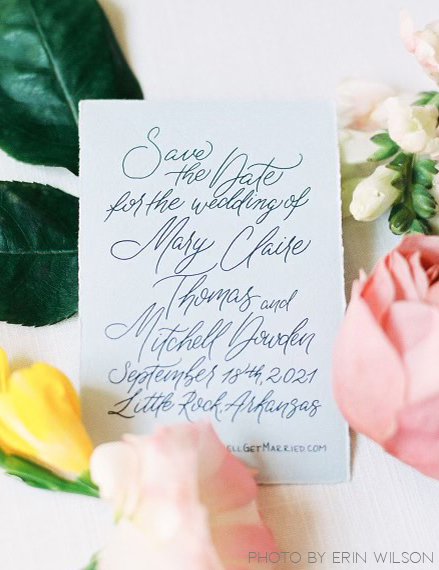 Save
the Date
for the wedding of
Mary Claire
Thomas and
Mitchell Dowden
September 18th, 2021
Little Rock, Arkansas
ELLGETMARRIED.COM
PHOTO BY ERIN WILSON